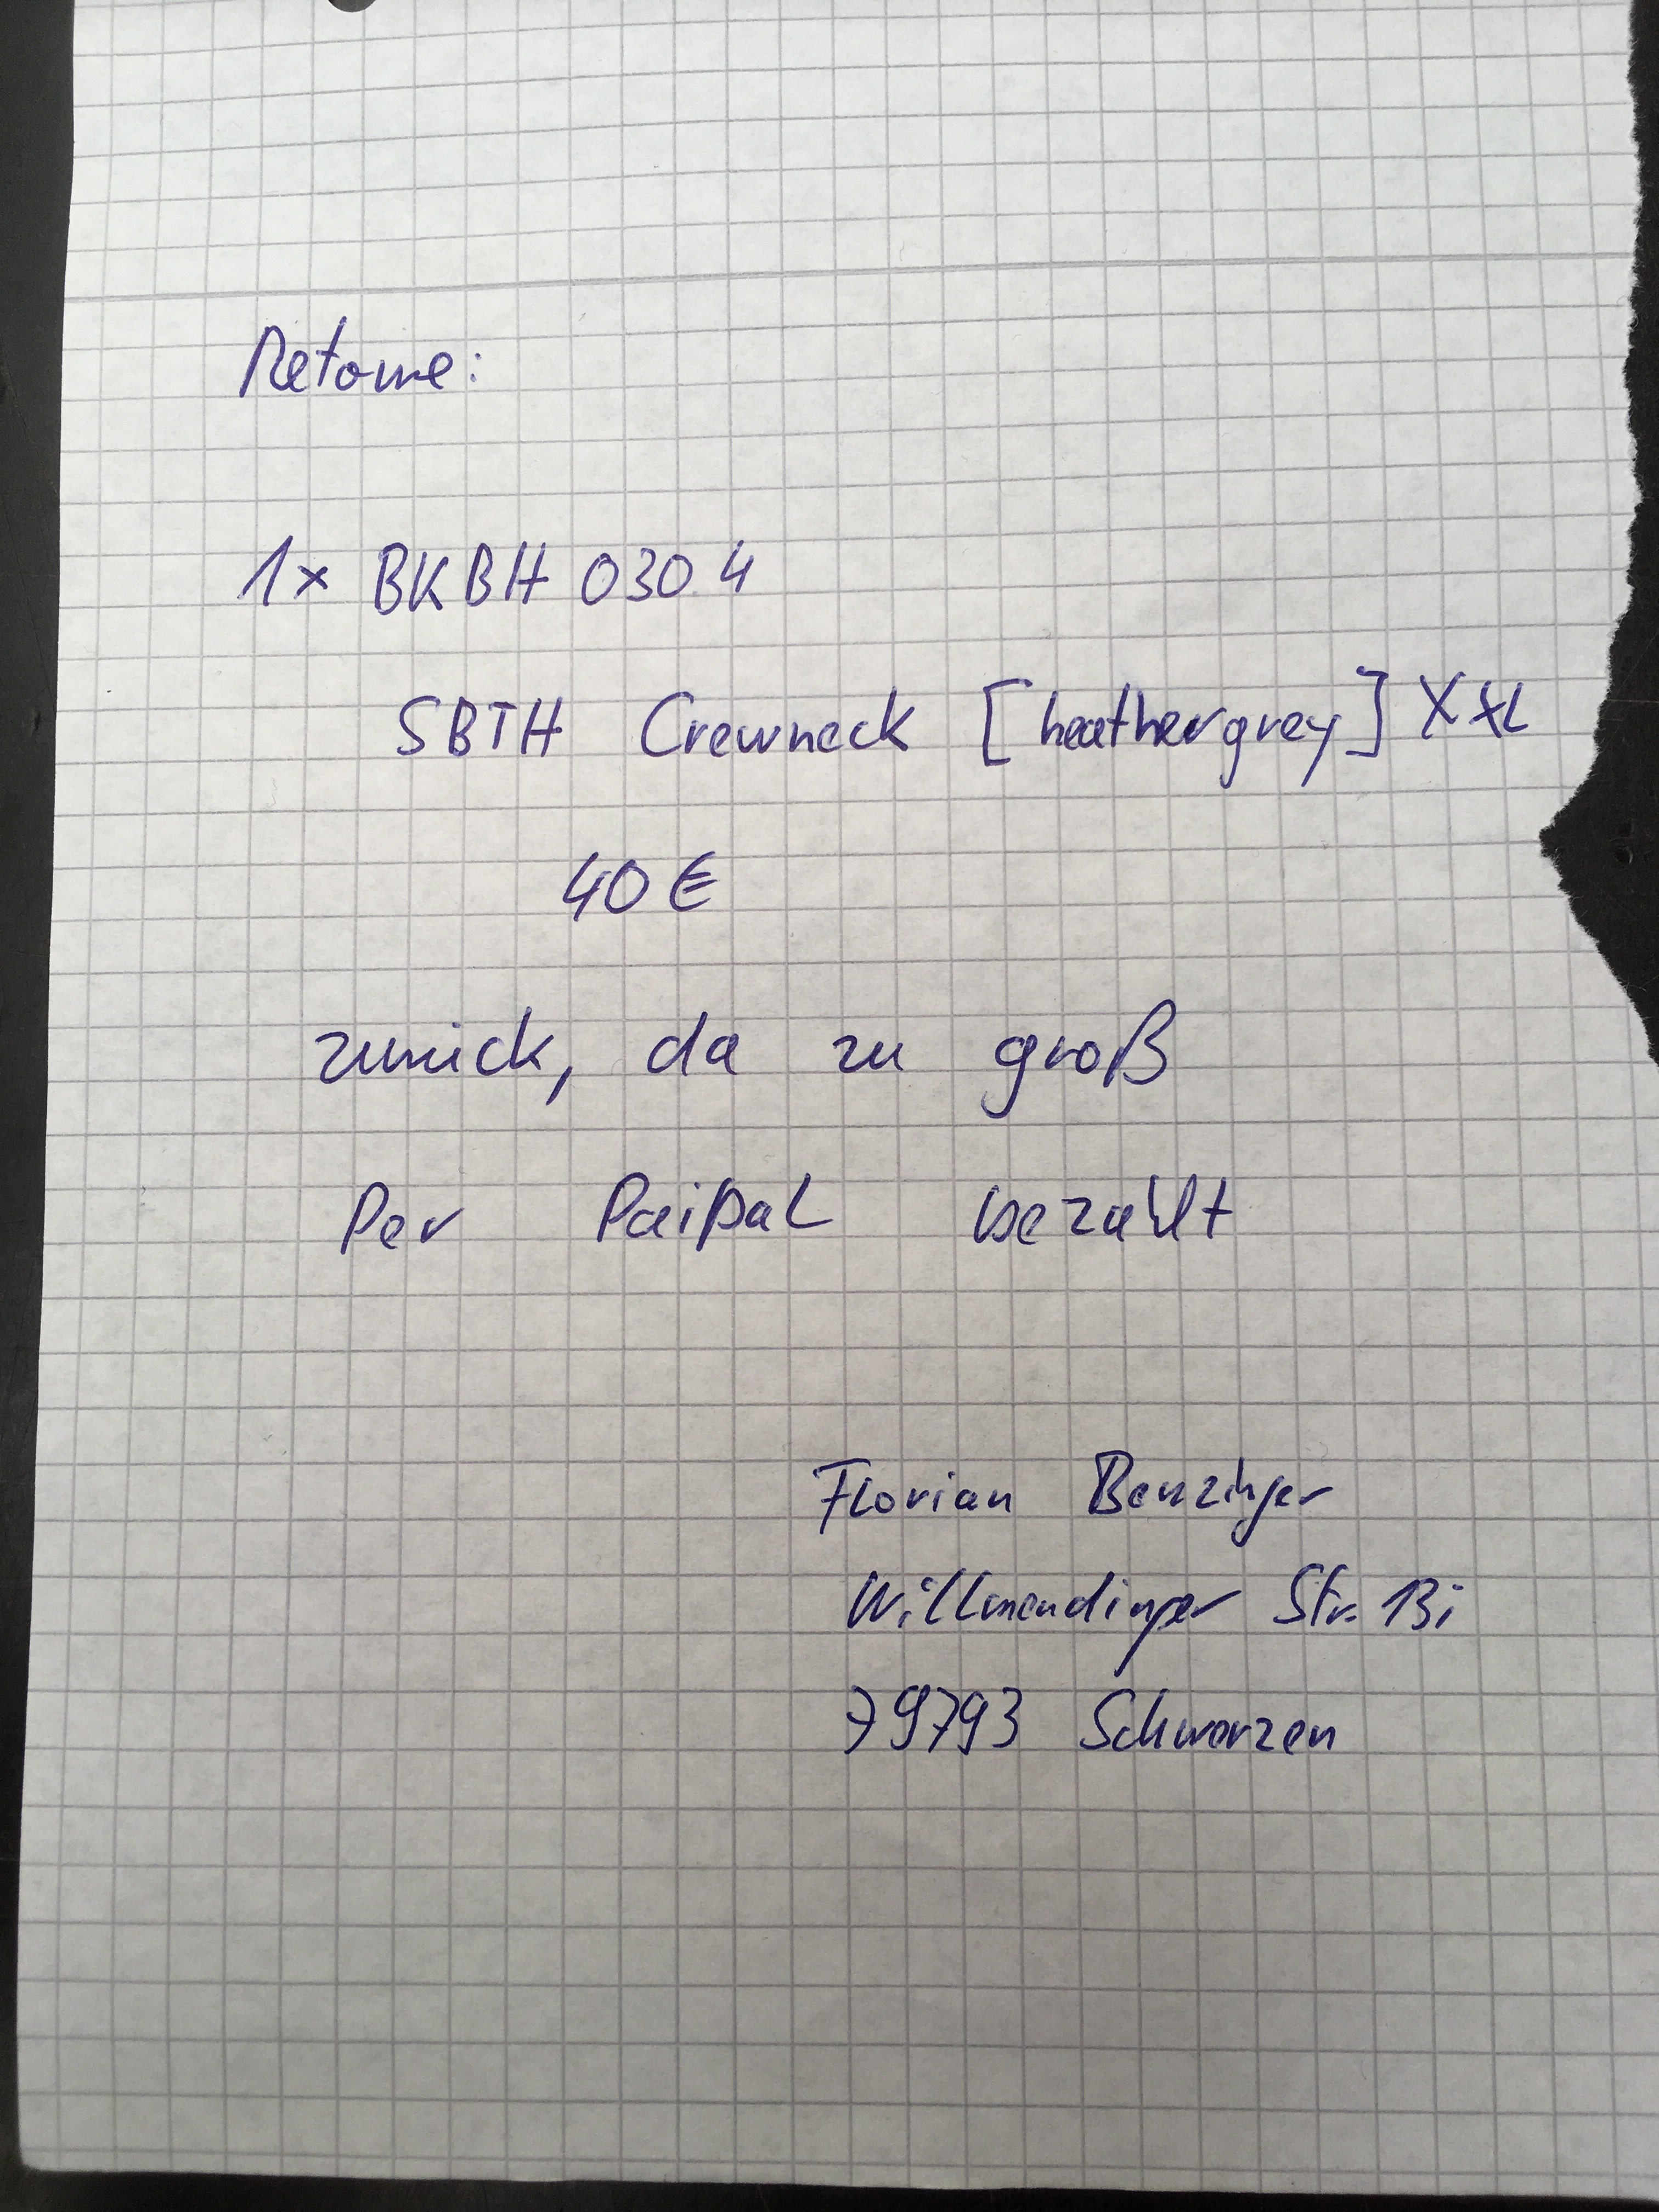 Retoure:
1x BKBH 0304
SBTH Crewneck [heathergrey] XXL
40€
zurück, da zu groß
Per PaiPal bezahlt
Florian Benzinger
Willmendinger Str. 13i
79793 Schwerzen